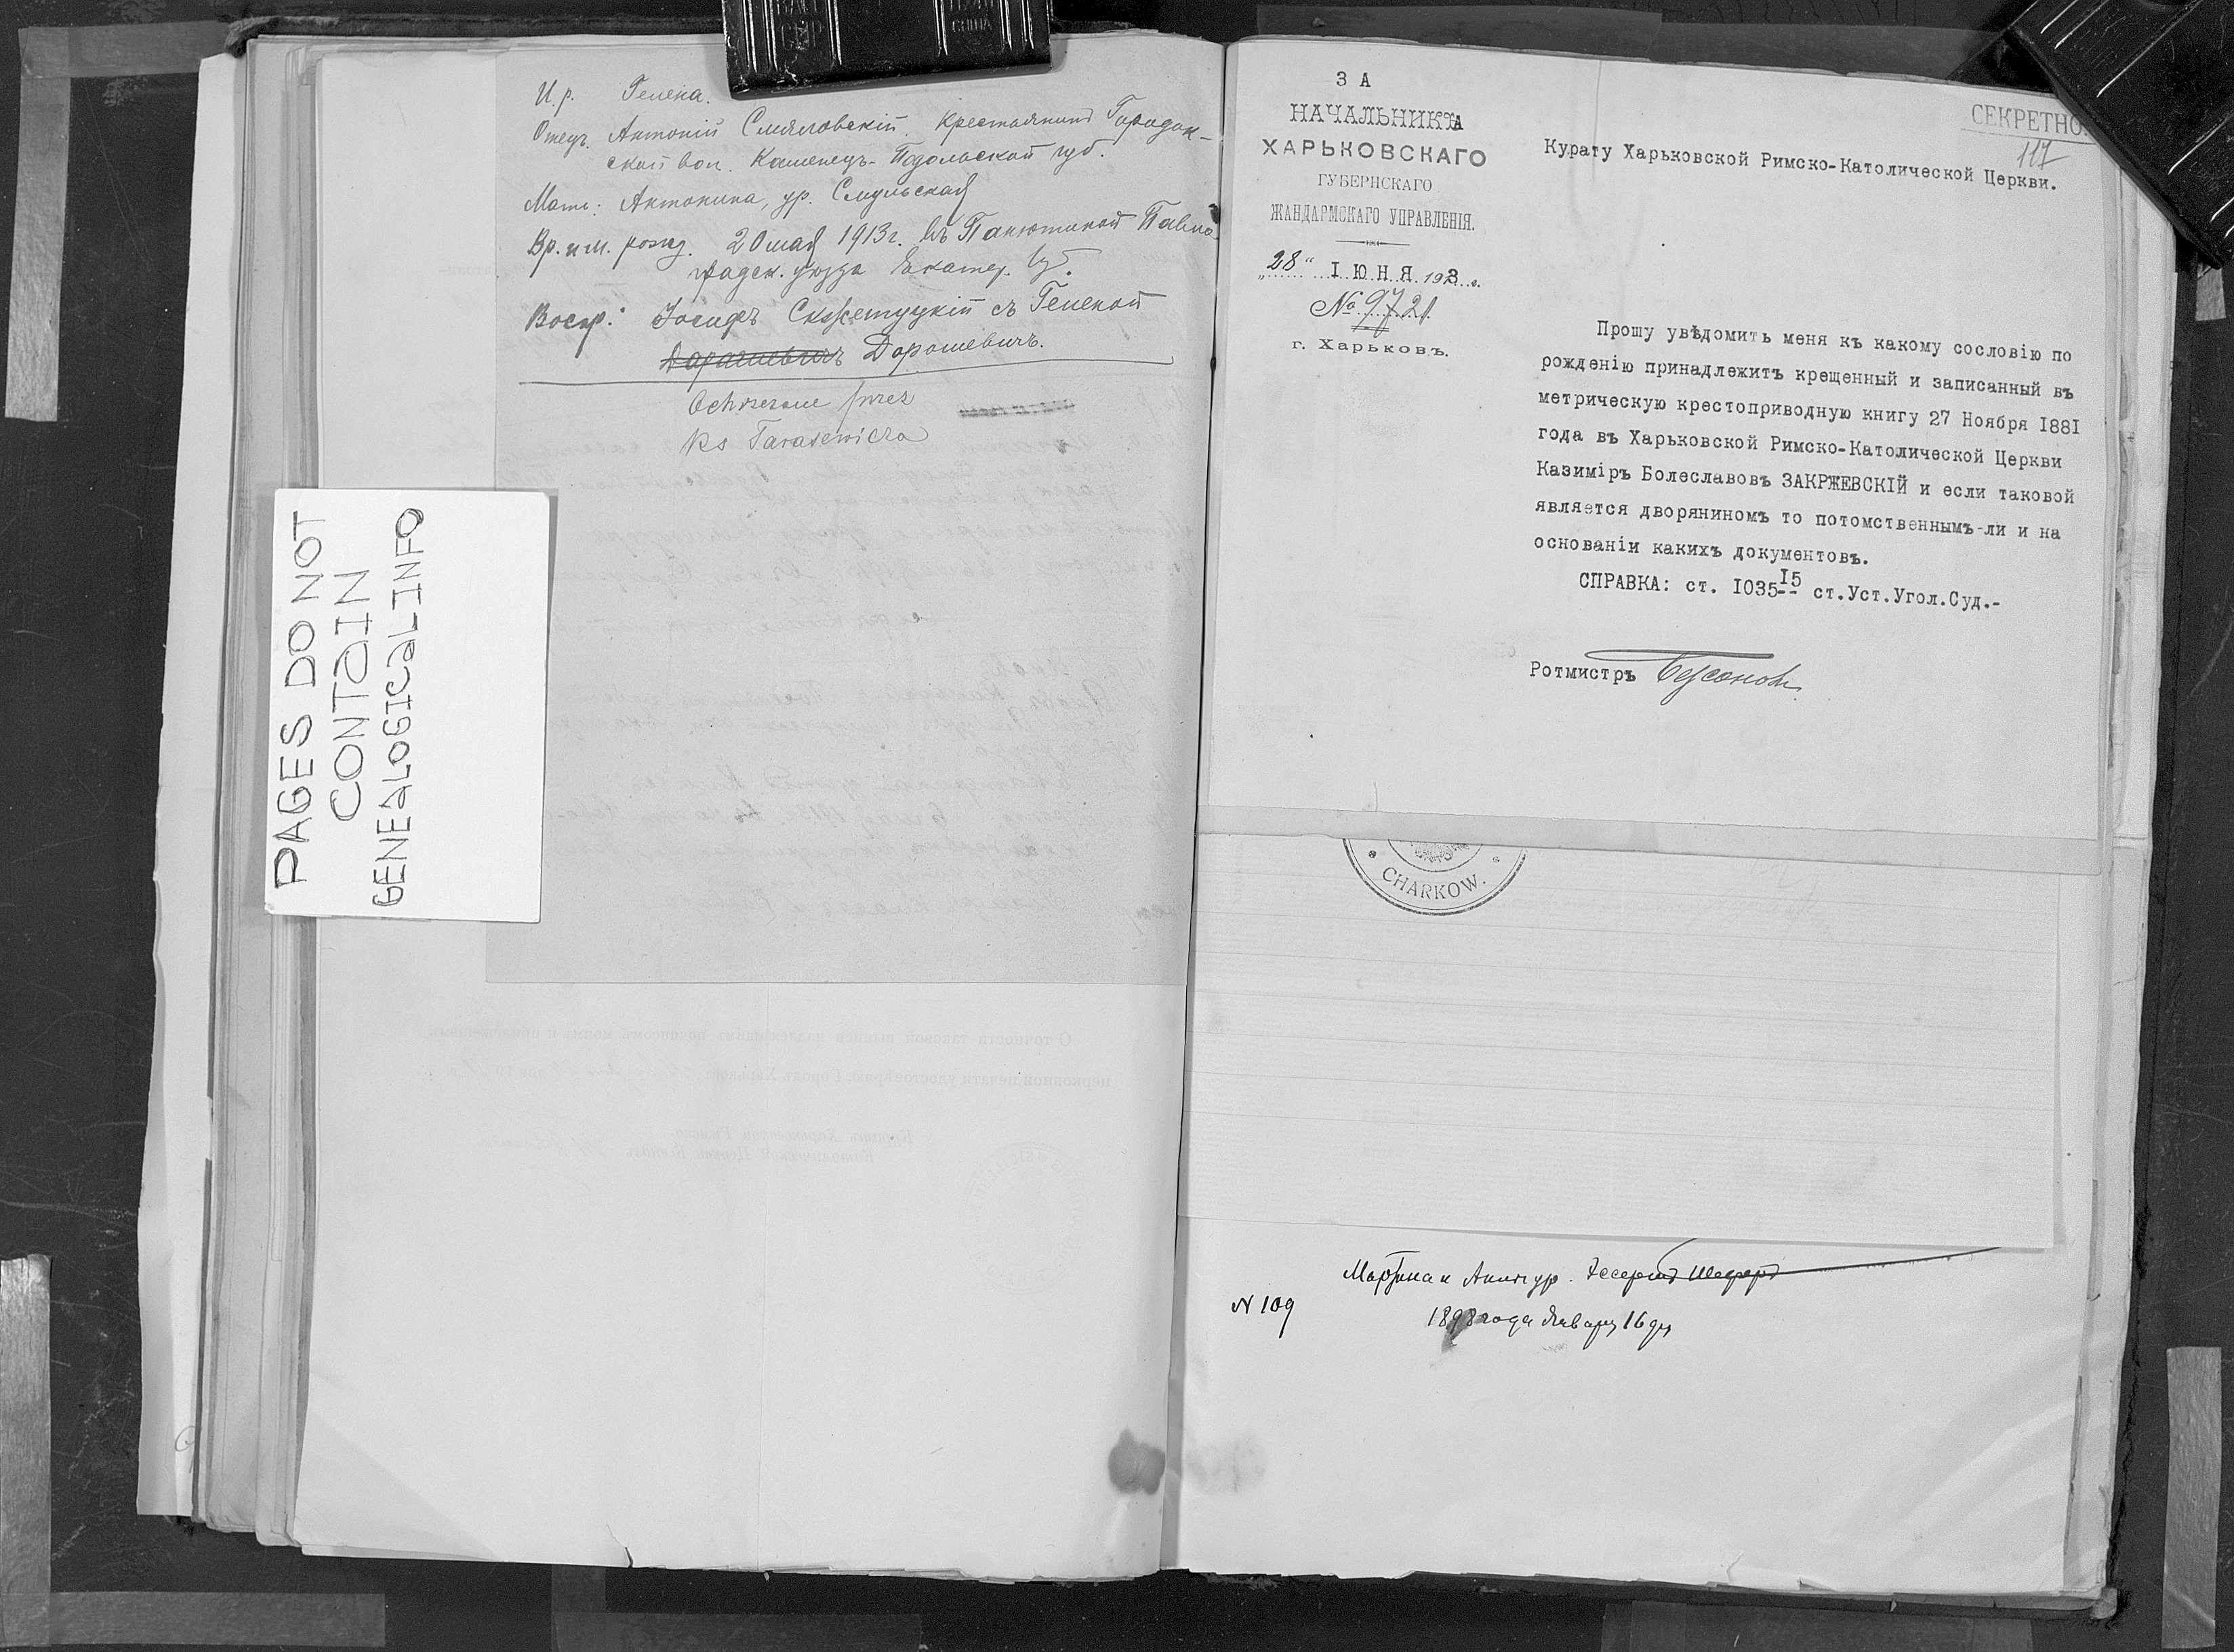 И. р. Гелена.
Отецъ Антоній Смиловскій. Крестьянинъ Городок-
ской вол. Каменецъ-Подольской губ.
Мать: Антонина, ур. Смульская
Вр. и м. рожд. 20 мая 1913 г. въ Панютиной Павло
градск. уѣзда Екатер. губ.
Воспр: Іосифъ Скжетуцкій съ Геленой
Дорошевичъ.
Ochrzczone przez
ks Tarasewicza
PAGES DO NOT
CONTAIN
GENEALOGICAL INFO
ЗА
НАЧАЛЬНИКА
ХАРЬКОВСКАГО
ГУБЕРНСКАГО
ЖАНДАРМСКАГО УПРАВЛЕНІЯ.
„28“ ІЮНЯ 1913 г.
№ 9721
г. Харьковъ.
СЕКРЕТНО.
117
Курату Харьковской Римско-Католической Церкви.
Прошу увѣдомить меня къ какому сословію по
рожденію принадлежитъ крещенный и записанный въ
метрическую крестоприводную книгу 27 Ноября I88I
года въ Харьковской Римско-Католической Церкви
Казиміръ Болеславовъ ЗАКРЖЕВСКІЙ и если таковой
является дворяниномъ то потомственнымъ-ли и на
основаніи какихъ документовъ.
СПРАВКА: ст. I035 I5 ст.Уст.Угол.Суд.-
Ротмистръ
CHARKOW.
N 109
1898 года Января 16 дня